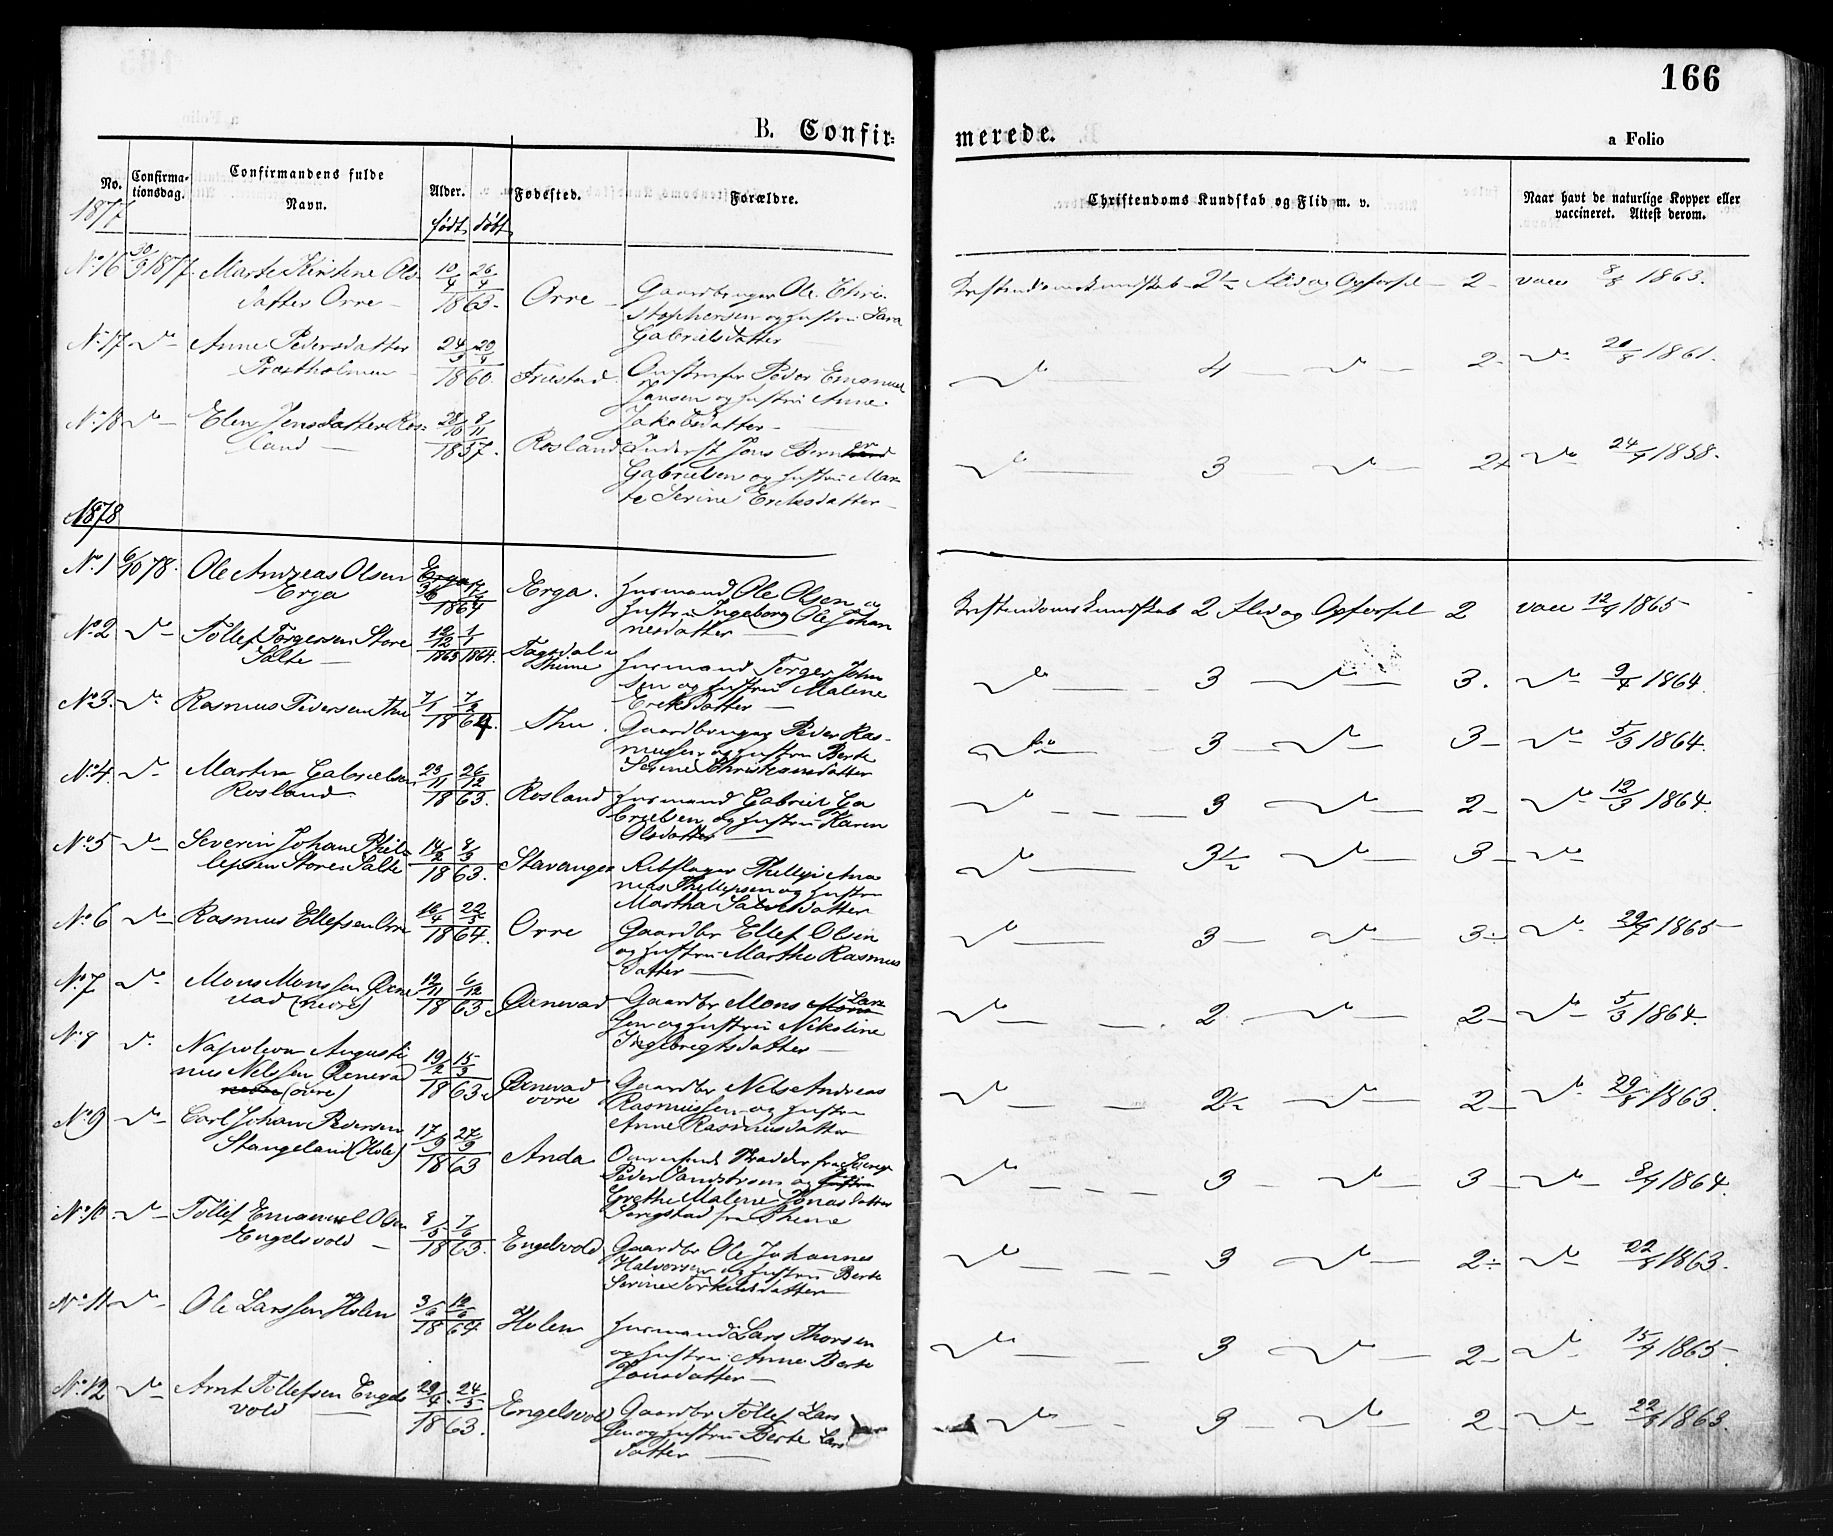 166
B. Confir=
merede.
a Folio
No.
Confirma-
tionsdag.
Confirmandens fulde
Navn.
Alder.
født døbt
Fødested.
Forældre.
Christendoms Kundskab og Flid m. v.
Naar havt de naturlige Kopper eller
vaccineret. Attest derom.
1877
No 16 30/9 1877 Marte Kirstine Ols- 10/4 26/4 Gaardbruger Ole Chri-
datter Orre 1863. Orre stophersen og hustru Sara
Gabrielsdatter
Kristendomskundskab 2½ Flid og Opførsel 2 vacc 8/8 1863.
No 17 do Anne Pedersdatter 24/3 20/4
1860. Friestad Peder Emanuel
Jansen og hustru Anne
Jakobsdatter
do 4 do 2 do 20/8 1861.
No 18 do Elen Jensdatter Ros- 28/10 8/11
land 1857. Rosland Inderst Jens Bern
Gabrielsen og hustru Mar-
te Serine Eriksdatter
do 3 do 2 do 24/9 1858.
1878
No 1 6/10 78. Ole Andreas Olsen 3/6 17/7
Erga 1864 Erga. Husmand Ole Olsen og
hustru Ingeborg Ole Johan
nesdatter
Kristendomskundskab 2 Flid og Opførsel 2 vacc 12/9 1865
No 2 do Tollef Torgersen Store 12/12 1/1
Salte 1863 1864. Thime Husmand Torger John
sen og hustru Malene
Eriksdatter
do 3 do 3. do 9/4 1864.
No 3. do Rasmus Pedersen Thu 7/1 7/2
1864. Thu Gaardbruger Peder Ras-
mussen og hustru Berte
Serine Christiansdatter
do 3 do 3 do 5/3 1864.
No 4. do Martin Gabrielsen 23/11 26/12
Rosland 1863. Rosland Husmand Gabriel Ga
brielsen og hustru Karen
Olsdatter
do 3 do 2 do 12/3 1864.
No 5 do Severin Johan Phil-
lipsen Store Salte 14/2 8/3 1863. Stavanger Rebslager
og hustru
Martha
do 3½ do 3 do
No 6 do Rasmus Ellefsen Orre 16/4 22/5
1864. Orre Gaardbr Ellef Olsen
og hustru Marthe Rasmus
datter
do 3 do 3 do 29/7 1865
No 7 do Mons Monssen Øxne 12/11 6/12
vad (nedre) 1863 Øxnevad Gaardbr Mons Lars
sen og hustru Nikoline
Ingebregtsdatter
do 2 do 2 do 5/3 1864.
No 8 do Napoleon Augusti 19/2 15/3
nus Nelssen Øxnevad 1863. Øxnevad Gaardbr Nels Andreas
(øvre) øvre Rasmussen og hustru
Anne Rasmusdatter
do 2½ do 2 do 29/8 1863.
No 9 do Carl Johan Pedersen 17/9 27/9
Stangeland (Hole) 1863 Anda
Peder Sandstrøm og
Grethe Malene Jonasdatter
fra Thime
do 3 do 3 do 8/9 1864.
No 10 do Tollef Emanuel Olsen 8/5 7/6
Engelsvold 1863. Engelvold Gaardbr Ole Johannes
Halvorsen og hustru Berte
Serine Torkelsdatter
do 3 do 2 do 22/8 1863.
No 11 do Ole Larssen Holen 3/6 12/6
1864 Holen Husmand Lars Thorsen
og hustru Anne Berte
Jonsdatter
do 3 do 2 do 15/9 1865.
No 12 do Arnt Tollefsen Engels 29/4 24/5
vold 1863. Engelsvold Gaardbr Tollef Lars
sen og hustru Berte Lars
datter
do 3 do 2 do 22/8 1863.